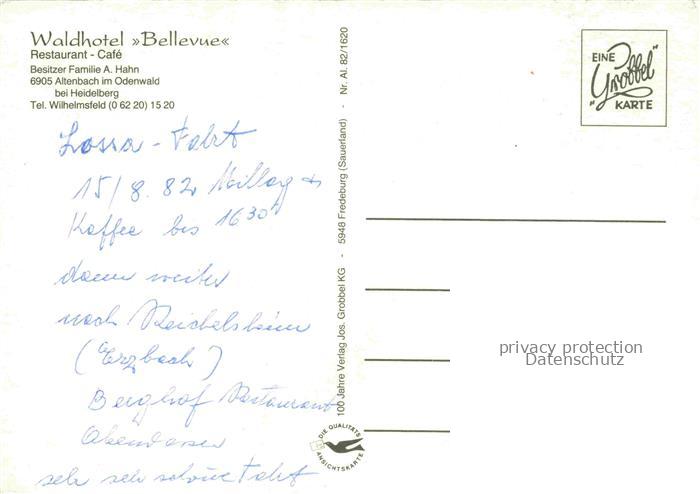 Waldhotel »Bellevue«
Restaurant - Café
Besitzer Familie A. Hahn
6905 Altenbach im Odenwald
bei Heidelberg
Tel. Wilhelmsfeld (0 62 20) 15 20
Lossa - Fahrt
15/8. 82
Kaffee bis 16 30
dann weiter
nach Reichelsheim
(Erzbach)
Berghof Restaurant
Abendessen
sehr sehr schöne Fahrt
100 Jahre Verlag Jos. Grobbel KG - 5948 Fredeburg (Sauerland) - Nr. Al. 82/1620
DIE QUALITÄTS
ANSICHTSKARTE
EINE
"Grobbel"
KARTE
privacy protection
Datenschutz